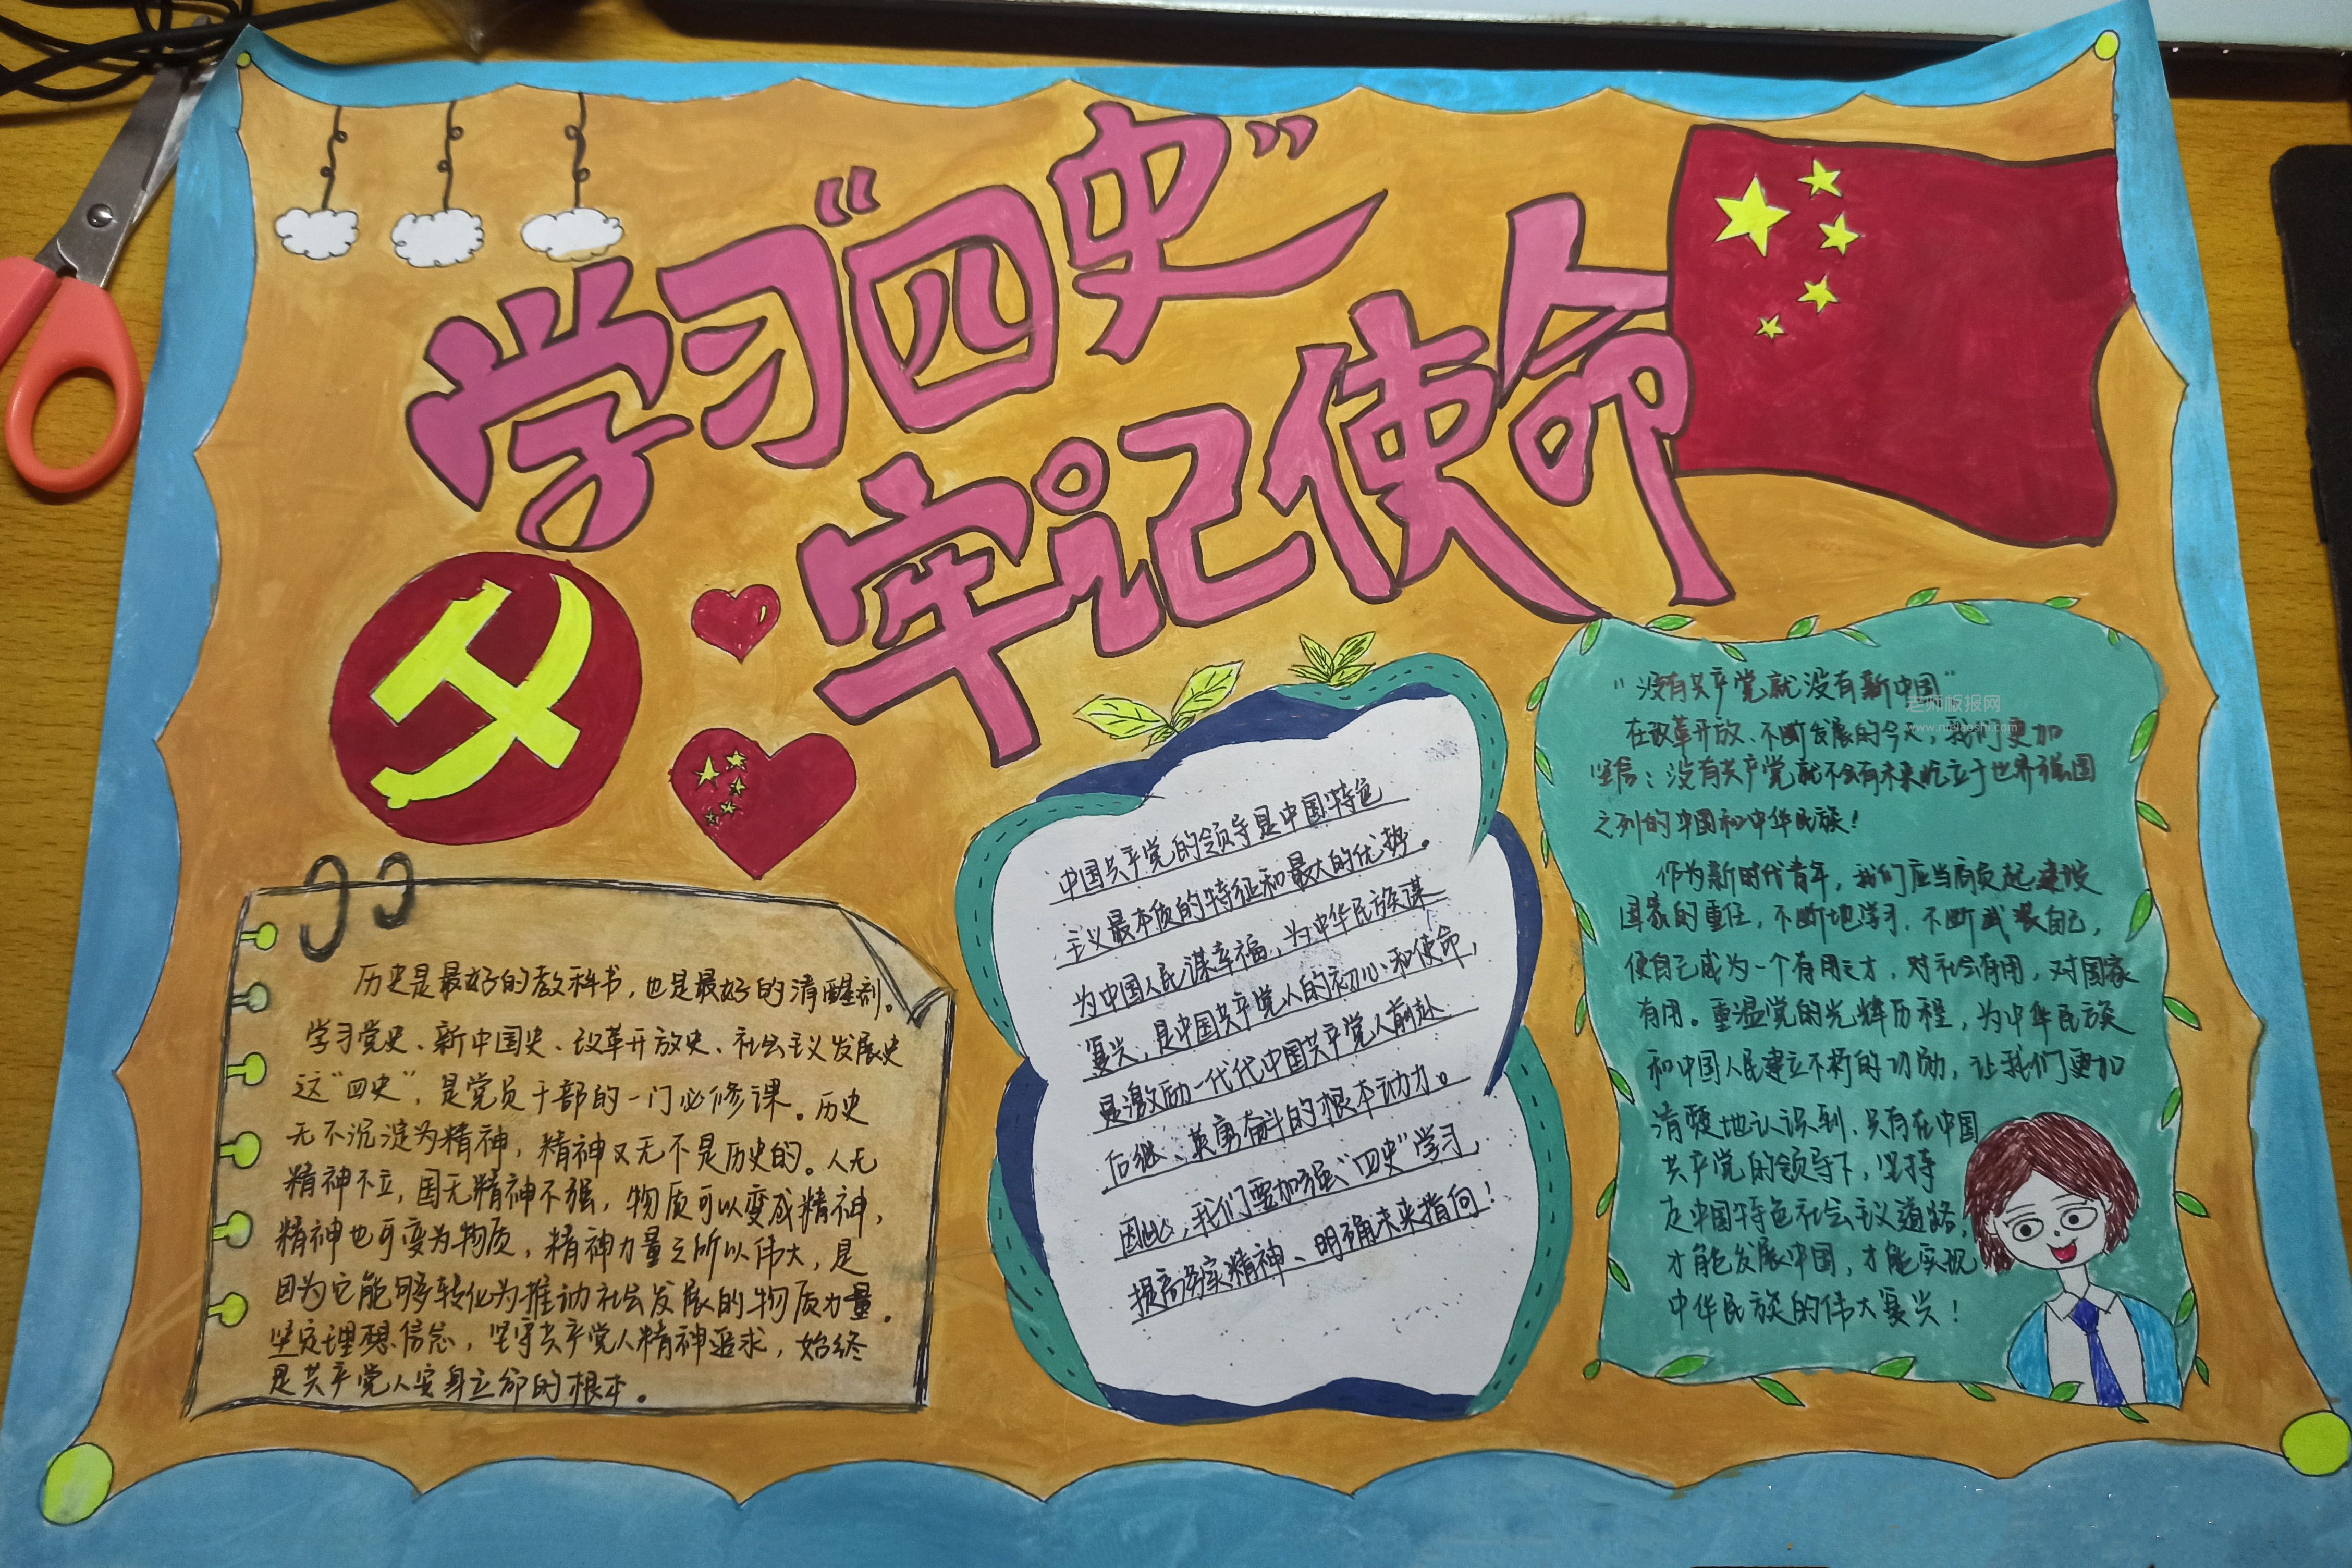 学习“四史”
牢记使命
历史是最好的教科书，也是最好的清醒剂。
学习党史、新中国史、改革开放史、社会主义发展史
这“四史”，是党员干部的一门必修课。历史
无不沉淀为精神，精神又无不是历史的。人无
精神不立，国无精神不强，物质可以变成精神，
精神也可变为物质，精神力量之所以伟大，是
因为它能够转化为推动社会发展的物质力量。
坚定理想信念，坚守共产党人精神追求，始终
是共产党人安身立命的根本。
中国共产党的领导是中国特色
主义最本质的特征和最大的优势。
为中国人民谋幸福，为中华民族谋
复兴，是中国共产党人的初心和使命，
是激励一代代中国共产党人前赴
后继、英勇奋斗的根本动力。
因此，我们要加强“四史”学习，
提高务实精神、明确未来指向！
“没有共产党就没有新中国”
在改革开放、不断发展的今天，我们更加
坚信：没有共产党就不会有未来屹立于世界强国
之列的中国和中华民族！
作为新时代青年，我们应当肩负起建设
国家的重任，不断地学习，不断武装自己，
使自己成为一个有用之才，对社会有用，对国家
有用。重温党的光辉历程，为中华民族
和中国人民建立不朽的功勋，让我们更加
清楚地认识到，只有在中国
共产党的领导下，坚持
走中国特色社会主义道路，
才能发展中国，才能实现
中华民族的伟大复兴！
老师板报网